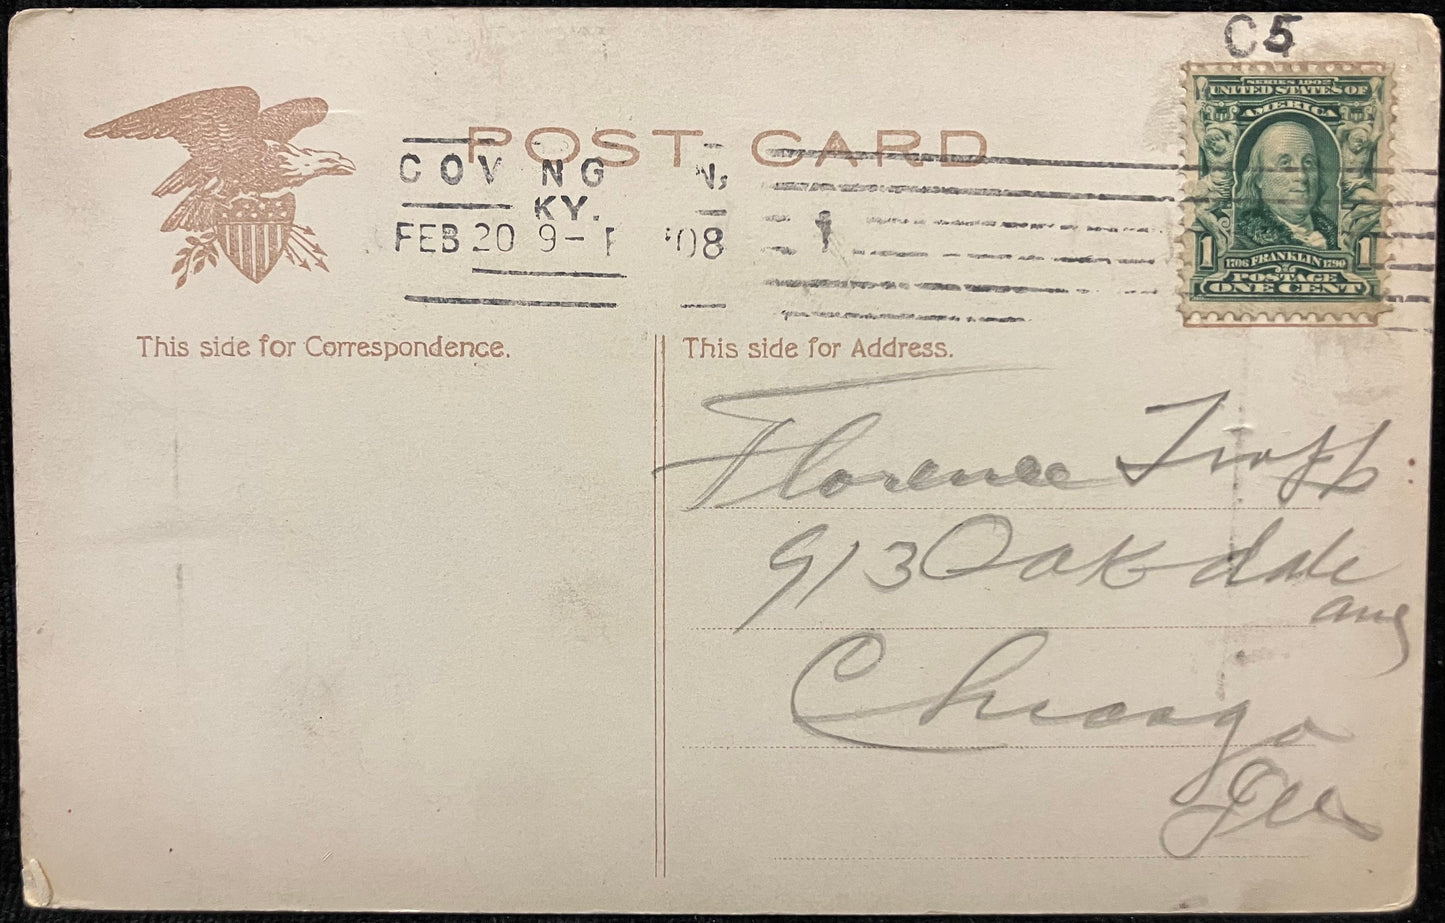 C5
SERIES 1902
UNITED STATES OF
AMERICA
1 1
1706 FRANKLIN 1790
POSTAGE
ONE CENT
POST CARD
COV NG N,
KY.
FEB 20 9- '08
1
This side for Correspondence.
This side for Address.
Florence
913 Oakdale
Chicago
Ill